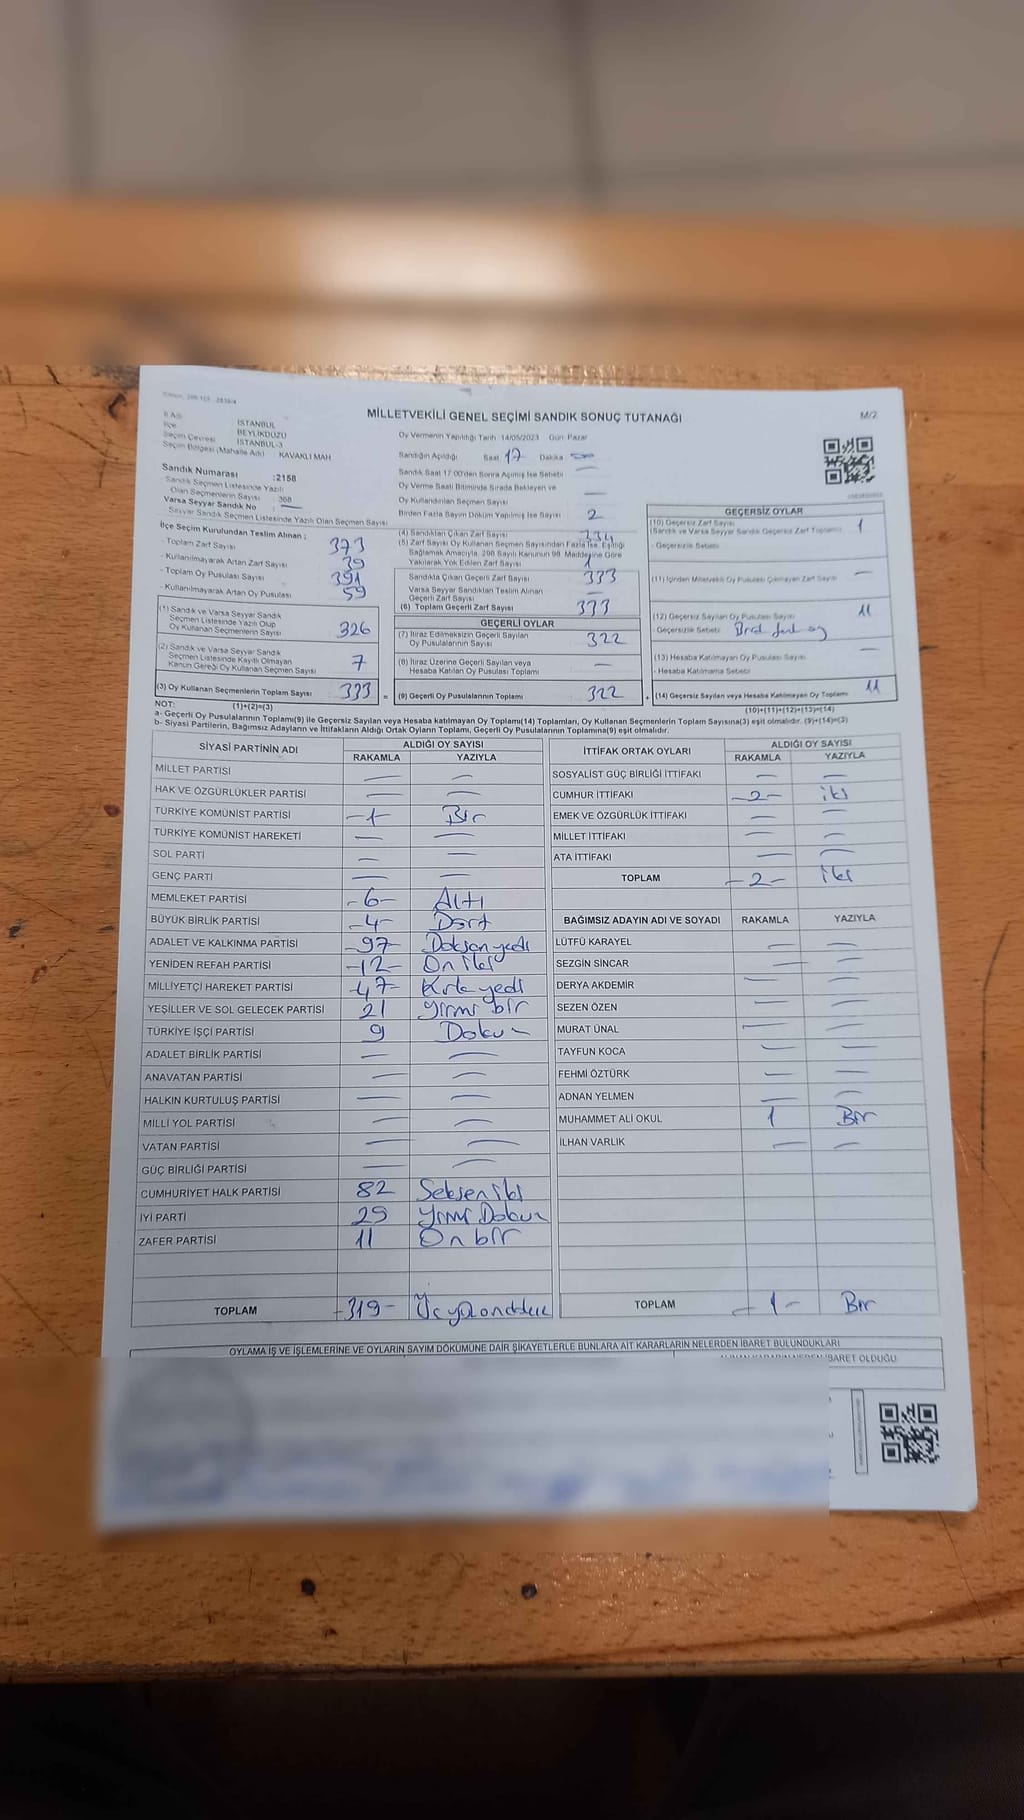 MİLLETVEKİLİ GENEL SEÇİMİ SANDIK SONUÇ TUTANAĞI
M/2
İli Adı İSTANBUL
İlçe BEYLİKDÜZÜ
Seçim Çevresi İSTANBUL-3
Seçim Bölgesi (Mahalle Adı) KAVAKLI MAH
Sandık Numarası :2158
Sandık Seçmen Listesinde Yazılı
Olan Seçmenlerin Sayısı : 368
Varsa Seyyar Sandık No : —
Seyyar Sandık Seçmen Listesinde Yazılı Olan Seçmen Sayısı
Oy Vermenin Yapıldığı Tarih 14/05/2023 Gün Pazar
Sandığın Açıldığı Saat 17 Dakika
Sandık Saat 17:00'den Sonra Açılmış İse Sebebi —
Oy Verme Saati Bitiminde Sırada Bekleyen ve
Oy Kullandırılan Seçmen Sayısı —
Birden Fazla Sayım Döküm Yapılmış İse Sayısı 2
İlçe Seçim Kurulundan Teslim Alınan :
- Toplam Zarf Sayısı 373
- Kullanılmayarak Artan Zarf Sayısı 39
- Toplam Oy Pusulası Sayısı 391
- Kullanılmayarak Artan Oy Pusulası 59
(1) Sandık ve Varsa Seyyar Sandık
Seçmen Listesinde Yazılı Olup
Oy Kullanan Seçmenlerin Sayısı 326
(2) Sandık ve Varsa Seyyar Sandık
Seçmen Listesinde Kayıtlı Olmayan
Kanun Gereği Oy Kullanan Seçmen Sayısı 7
(3) Oy Kullanan Seçmenlerin Toplam Sayısı 333 =
(4) Sandıktan Çıkan Zarf Sayısı 334
(5) Zarf Sayısı Oy Kullanan Seçmen Sayısından Fazla İse, Eşitliği
Sağlamak Amacıyla, 298 Sayılı Kanunun 98. Maddesine Göre
Yakılarak Yok Edilen Zarf Sayısı 1
Sandıkta Çıkan Geçerli Zarf Sayısı 333
Varsa Seyyar Sandıktan Teslim Alınan
Geçerli Zarf Sayısı —
(6) Toplam Geçerli Zarf Sayısı 333
GEÇERLİ OYLAR
(7) İtiraz Edilmeksizin Geçerli Sayılan
Oy Pusulalarının Sayısı 322
(8) İtiraz Üzerine Geçerli Sayılan veya
Hesaba Katılan Oy Pusulası Toplamı —
(9) Geçerli Oy Pusulalarının Toplamı 322 +
GEÇERSİZ OYLAR
(10) Geçersiz Zarf Sayısı 1
(Sandık ve Varsa Seyyar Sandık Geçersiz Zarf Toplamı)
- Geçersizlik Sebebi
(11) İçinden Milletvekili Oy Pusulası Çıkmayan Zarf Sayısı —
(12) Geçersiz Sayılan Oy Pusulası Sayısı 11
- Geçersizlik Sebebi oy
(13) Hesaba Katılmayan Oy Pusulası Sayısı —
- Hesaba Katılmama Sebebi
(14) Geçersiz Sayılan veya Hesaba Katılmayan Oy Toplamı 11
NOT: (1)+(2)=(3) (10)+(11)+(12)+(13)=(14)
a- Geçerli Oy Pusulalarının Toplamı(9) ile Geçersiz Sayılan veya Hesaba katılmayan Oy Toplamı(14) Toplamları, Oy Kullanan Seçmenlerin Toplam Sayısına(3) eşit olmalıdır. (9)+(14)=(3)
b- Siyasi Partilerin, Bağımsız Adayların ve İttifakların Aldığı Ortak Oyların Toplamı, Geçerli Oy Pusulalarının Toplamına(9) eşit olmalıdır.
SİYASİ PARTİNİN ADI ALDIĞI OY SAYISI
RAKAMLA YAZIYLA
MİLLET PARTİSİ — —
HAK VE ÖZGÜRLÜKLER PARTİSİ — —
TÜRKİYE KOMÜNİST PARTİSİ -1- Bir
TÜRKİYE KOMÜNİST HAREKETİ — —
SOL PARTİ — —
GENÇ PARTİ — —
MEMLEKET PARTİSİ -6- Altı
BÜYÜK BİRLİK PARTİSİ -4- Dört
ADALET VE KALKINMA PARTİSİ -97- Doksan yedi
YENİDEN REFAH PARTİSİ -12- On iki
MİLLİYETÇİ HAREKET PARTİSİ -47- Kırk yedi
YEŞİLLER VE SOL GELECEK PARTİSİ 21 Yirmi bir
TÜRKİYE İŞÇİ PARTİSİ 9 Dokuz
ADALET BİRLİK PARTİSİ — —
ANAVATAN PARTİSİ — —
HALKIN KURTULUŞ PARTİSİ — —
MİLLİ YOL PARTİSİ — —
VATAN PARTİSİ — —
GÜÇ BİRLİĞİ PARTİSİ — —
CUMHURİYET HALK PARTİSİ 82 Seksen iki
İYİ PARTİ 29 Yirmi Dokuz
ZAFER PARTİSİ 11 On bir
TOPLAM -319- Üç yüz on dokuz
İTTİFAK ORTAK OYLARI ALDIĞI OY SAYISI
RAKAMLA YAZIYLA
SOSYALİST GÜÇ BİRLİĞİ İTTİFAKI — —
CUMHUR İTTİFAKI -2- iki
EMEK VE ÖZGÜRLÜK İTTİFAKI — —
MİLLET İTTİFAKI — —
ATA İTTİFAKI — —
TOPLAM -2- iki
BAĞIMSIZ ADAYIN ADI VE SOYADI RAKAMLA YAZIYLA
LÜTFÜ KARAYEL — —
SEZGİN SİNCAR — —
DERYA AKDEMİR — —
SEZEN ÖZEN — —
MURAT ÜNAL — —
TAYFUN KOCA — —
FEHMİ ÖZTÜRK — —
ADNAN YELMEN — —
MUHAMMET ALİ OKUL 1 Bir
İLHAN VARLIK — —
TOPLAM -1- Bir
OYLAMA İŞ VE İŞLEMLERİNE VE OYLARIN SAYIM DÖKÜMÜNE DAİR ŞİKAYETLERLE BUNLARA AİT KARARLARIN NELERDEN İBARET BULUNDUKLARI
İBARET OLDUĞU